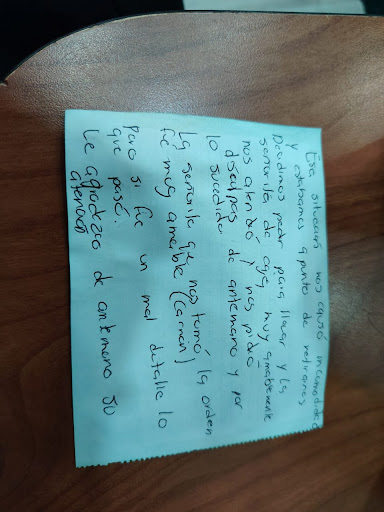 Esa situación nos causó incomodidad
y estabamos apunto de retirarnos
Decidimos pedir para llevar y la
señorita de caja muy amablemente
nos atendió y nos pidió
disculpas de antemano y por
lo sucedido
La señorita que nos tomó la orden
fue muy amable (Carmín)
Pero si fue un mal detalle lo
que pasó.
Le agradezco de antemano su
atención